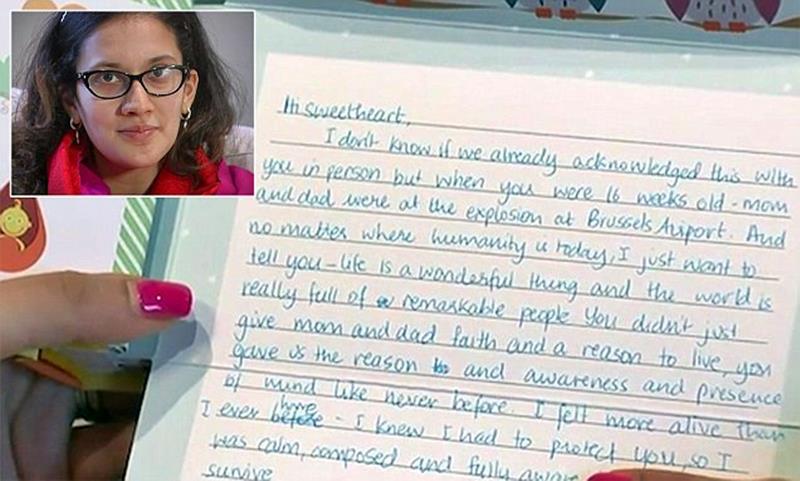 Hi sweetheart,
I don't know if we already acknowledged this with
you in person but when you were 16 weeks old - mom
and dad were at the explosion at Brussels Airport. And
no matter where humanity is today, I just want to
tell you - life is a wonderful thing and the world is
really full of remarkable people You didn't just
give mom and dad faith and a reason to live, you
gave us the reason and awareness and presence
of mind like never before. I felt more alive than
I ever before have - I knew I had to protect you, so I
was calm, composed and fully aware
survive